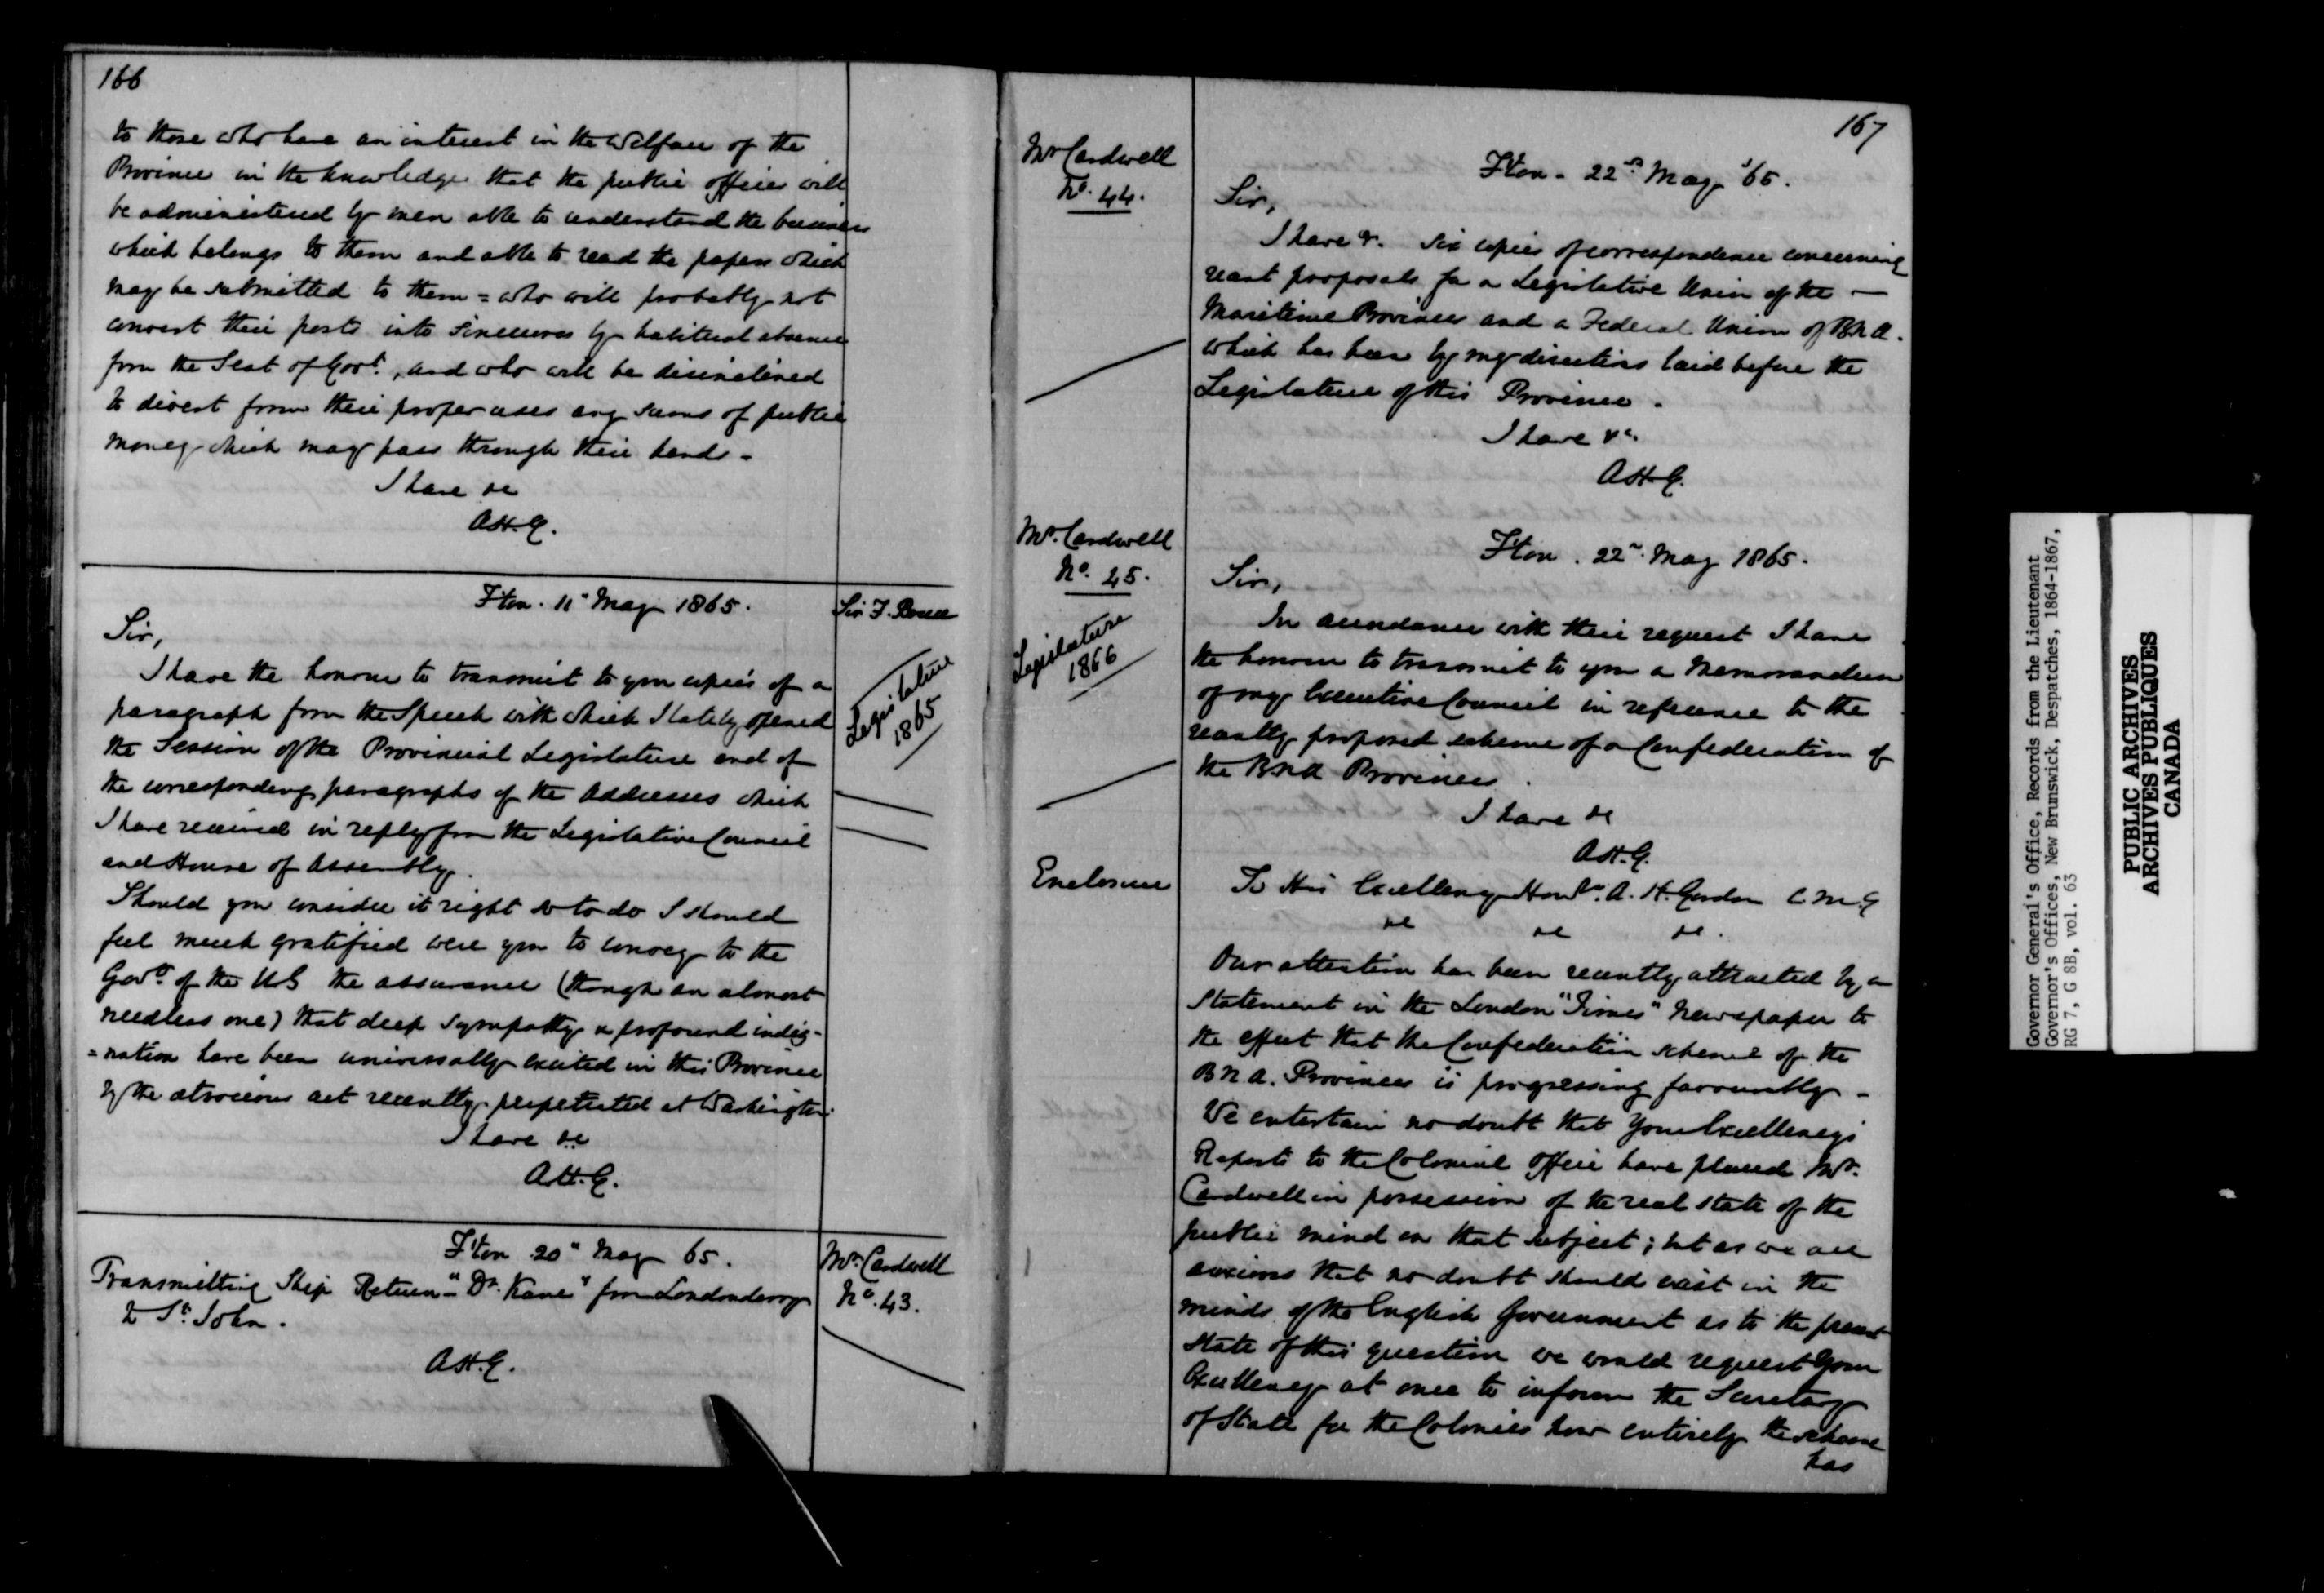 166
to those who have an interest in the Welfare of the
Province in the knowledge that the public offices will
be administered by men able to understand the business
which belongs to them and able to read the papers which
may be submitted to them = who will probably not
convert their posts into Sinecures by habitual absence
from the Seat of Govt., and who will be disinclined
to divert from their proper uses any sums of public
money which may pass through their hands -
I have &c
A.H.G.
Fton. 11" May 1865.
Sir F. Bruce
Sir,
Legislature
1865
I have the honour to transmit to you copies of a
paragraph from the Speech with which I lately opened
the Session of the Provincial Legislature and of
the corresponding paragraphs of the Addresses which
I have received in reply from the Legislative Council
and House of Assembly.
Should you consider it right so to do I should
feel much gratified were you to convey to the
Govt. of the US the assurance (though an almost
needless one) that deep sympathy & profound indig-
=nation have been universally excited in this Province
by the atrocious act recently perpetrated at Washington.
I have &c
A.H.G.
F'ton 20" May 65.
Mr. Cardwell
No. 43.
Transmitting Ship Return - "Dr. Kane" from Londonderry
to St. John.
A.H.G.
167
Mr Cardwell
No. 44.
Fton - 22nd May '65.
Sir,
I have &. Six copies of correspondence concerning
recent proposals for a Legislative Union of the —
Maritime Provinces and a Federal Union of B.N.A.
which has been by my directions laid before the
Legislature of this Province.
I have &c.
A.H.G.
Mr. Cardwell
No. 45.
Fton. 22". May 1865.
Sir,
Legislature
1866
In accordance with their request I have
the honour to transmit to you a Memorandum
of my Executive Council in reference to the
recently proposed scheme of a Confederation of
the B.N.A Provinces.
I have &c
A.H.G.
Enclosure
To His Excellency Honble. A. H. Gordon C.M.G
&c &c &c.
Our attention has been recently attracted by a
Statement in the London "Times" Newspaper to
the effect that the Confederation scheme of the
B N A. Provinces is progressing favourably -
We entertain no doubt that Your Excellency's
Reports to the Colonial Office have placed Mr.
Cardwell in possession of the real state of the
public mind on that subject; but as we are
anxious that no doubt should exist in the
minds of the English Government as to the present
state of this question we would request Your
Excellency at once to inform the Secretary
of State for the Colonies how entirely the scheme
has
Governor General's Office, Records from the Lieutenant
Governor's Offices, New Brunswick, Despatches, 1864-1867,
RG 7, G 8B, vol. 63
PUBLIC ARCHIVES
ARCHIVES PUBLIQUES
CANADA